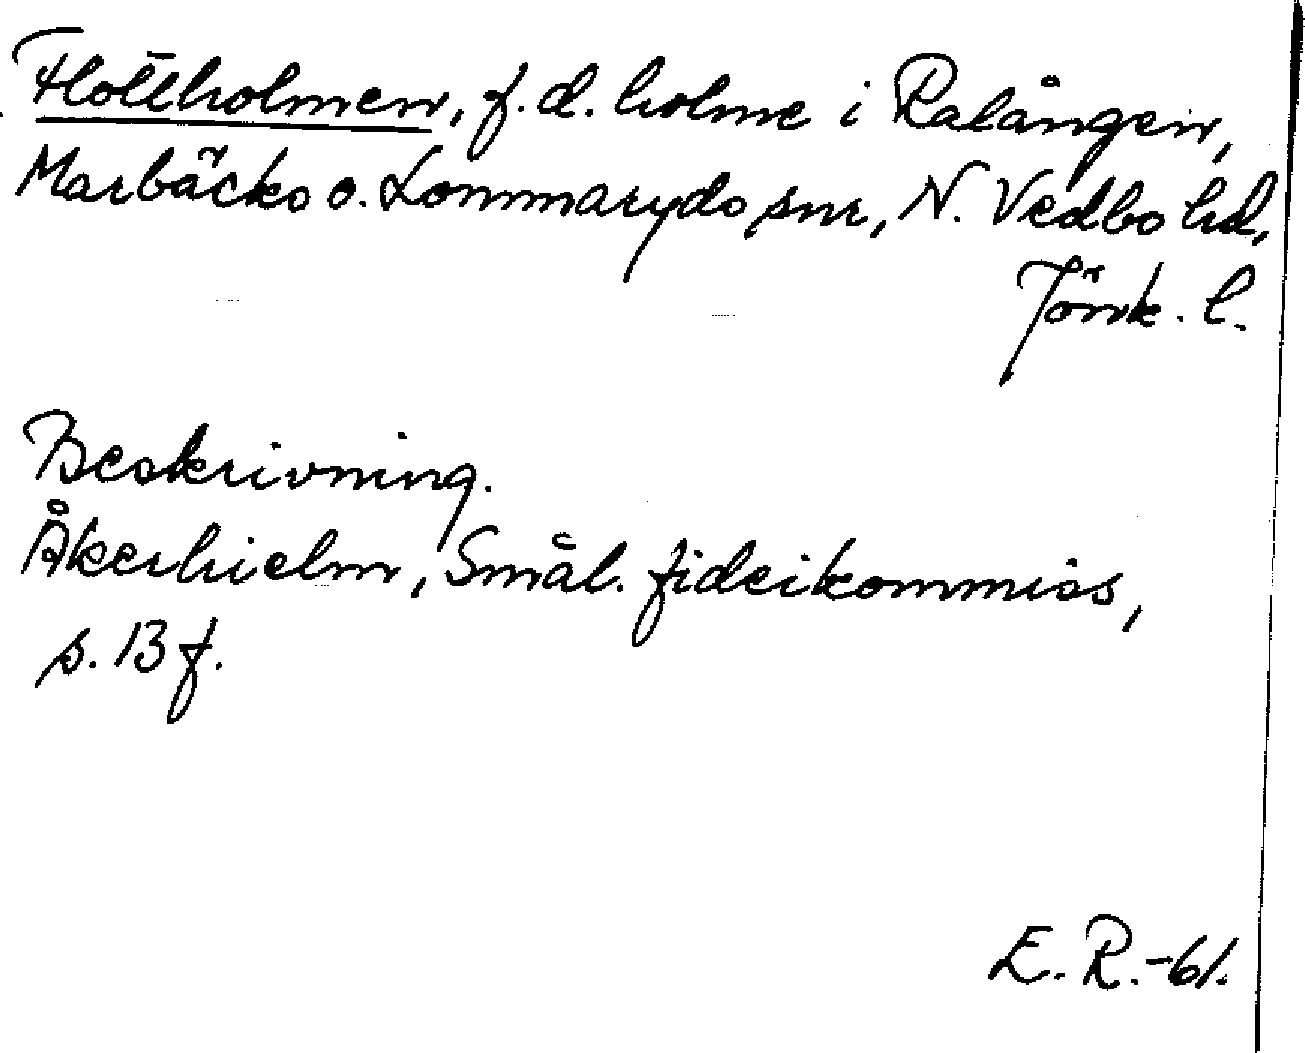 Flottholmen, f.d. holme i Ralången,
Marbäcks o. Lommaryds snr, N. Vedbo hd,
Jönk. l.
Beskrivning.
Åkerhielm, Smål. fideikommiss,
s. 13 f.
E. R. -61.